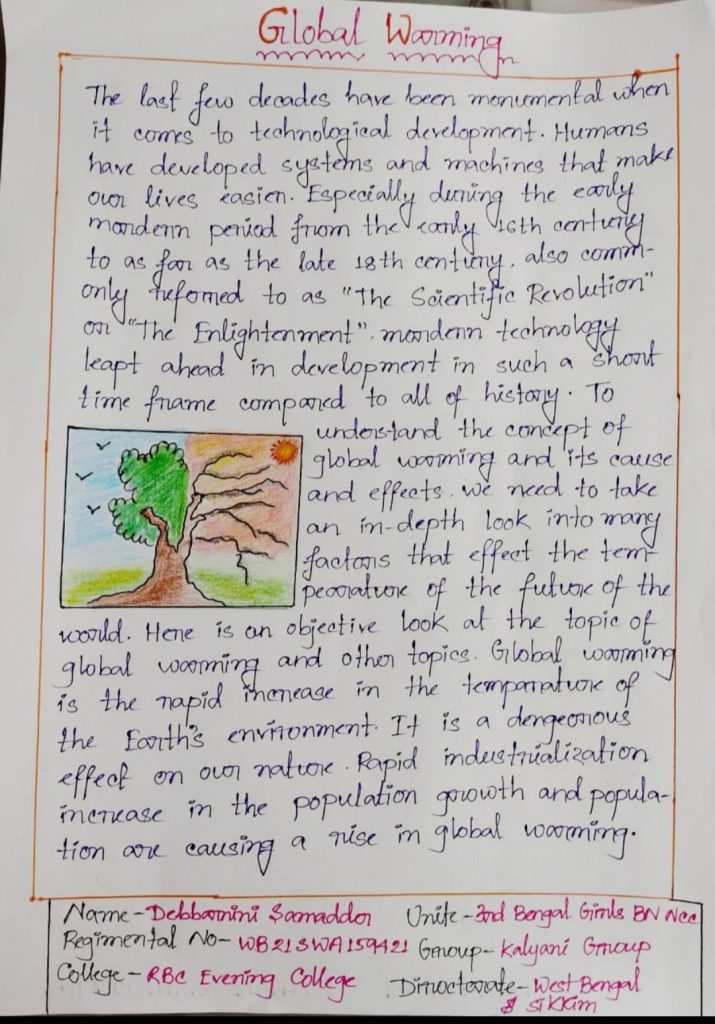 Global Warming
The last few decades have been monumental when
it comes to technological development. Humans
have developed systems and machines that make
our lives easier. Especially during the early
mordern period from the early 16th century
to as far as the late 18th century, also comm-
only referred to as "The Scientific Revolution"
or "The Enlightenment". mordern technology
leapt ahead in development in such a short
time frame compared to all of history. To
understand the concept of
global warming and its cause
and effects. we need to take
an in-depth look into many
factors that effect the tem-
pearature of the future of the
world. Here is an objective look at the topic of
global warming and other topics. Global warming
is the rapid increase in the temparature of
the Earth's environment. It is a dengeorous
effect on our nature. Rapid industrialization
increase in the population growth and popula-
tion are causing a rise in global warming.
Name - Debbarnini Samaddor Unite - 3rd Bengal Girls BN NCC
Regimental No - WB21SWA159421 Group - Kalyani Group
College - RBC Evening College Diroctorate - West Bengal
& Sikkim